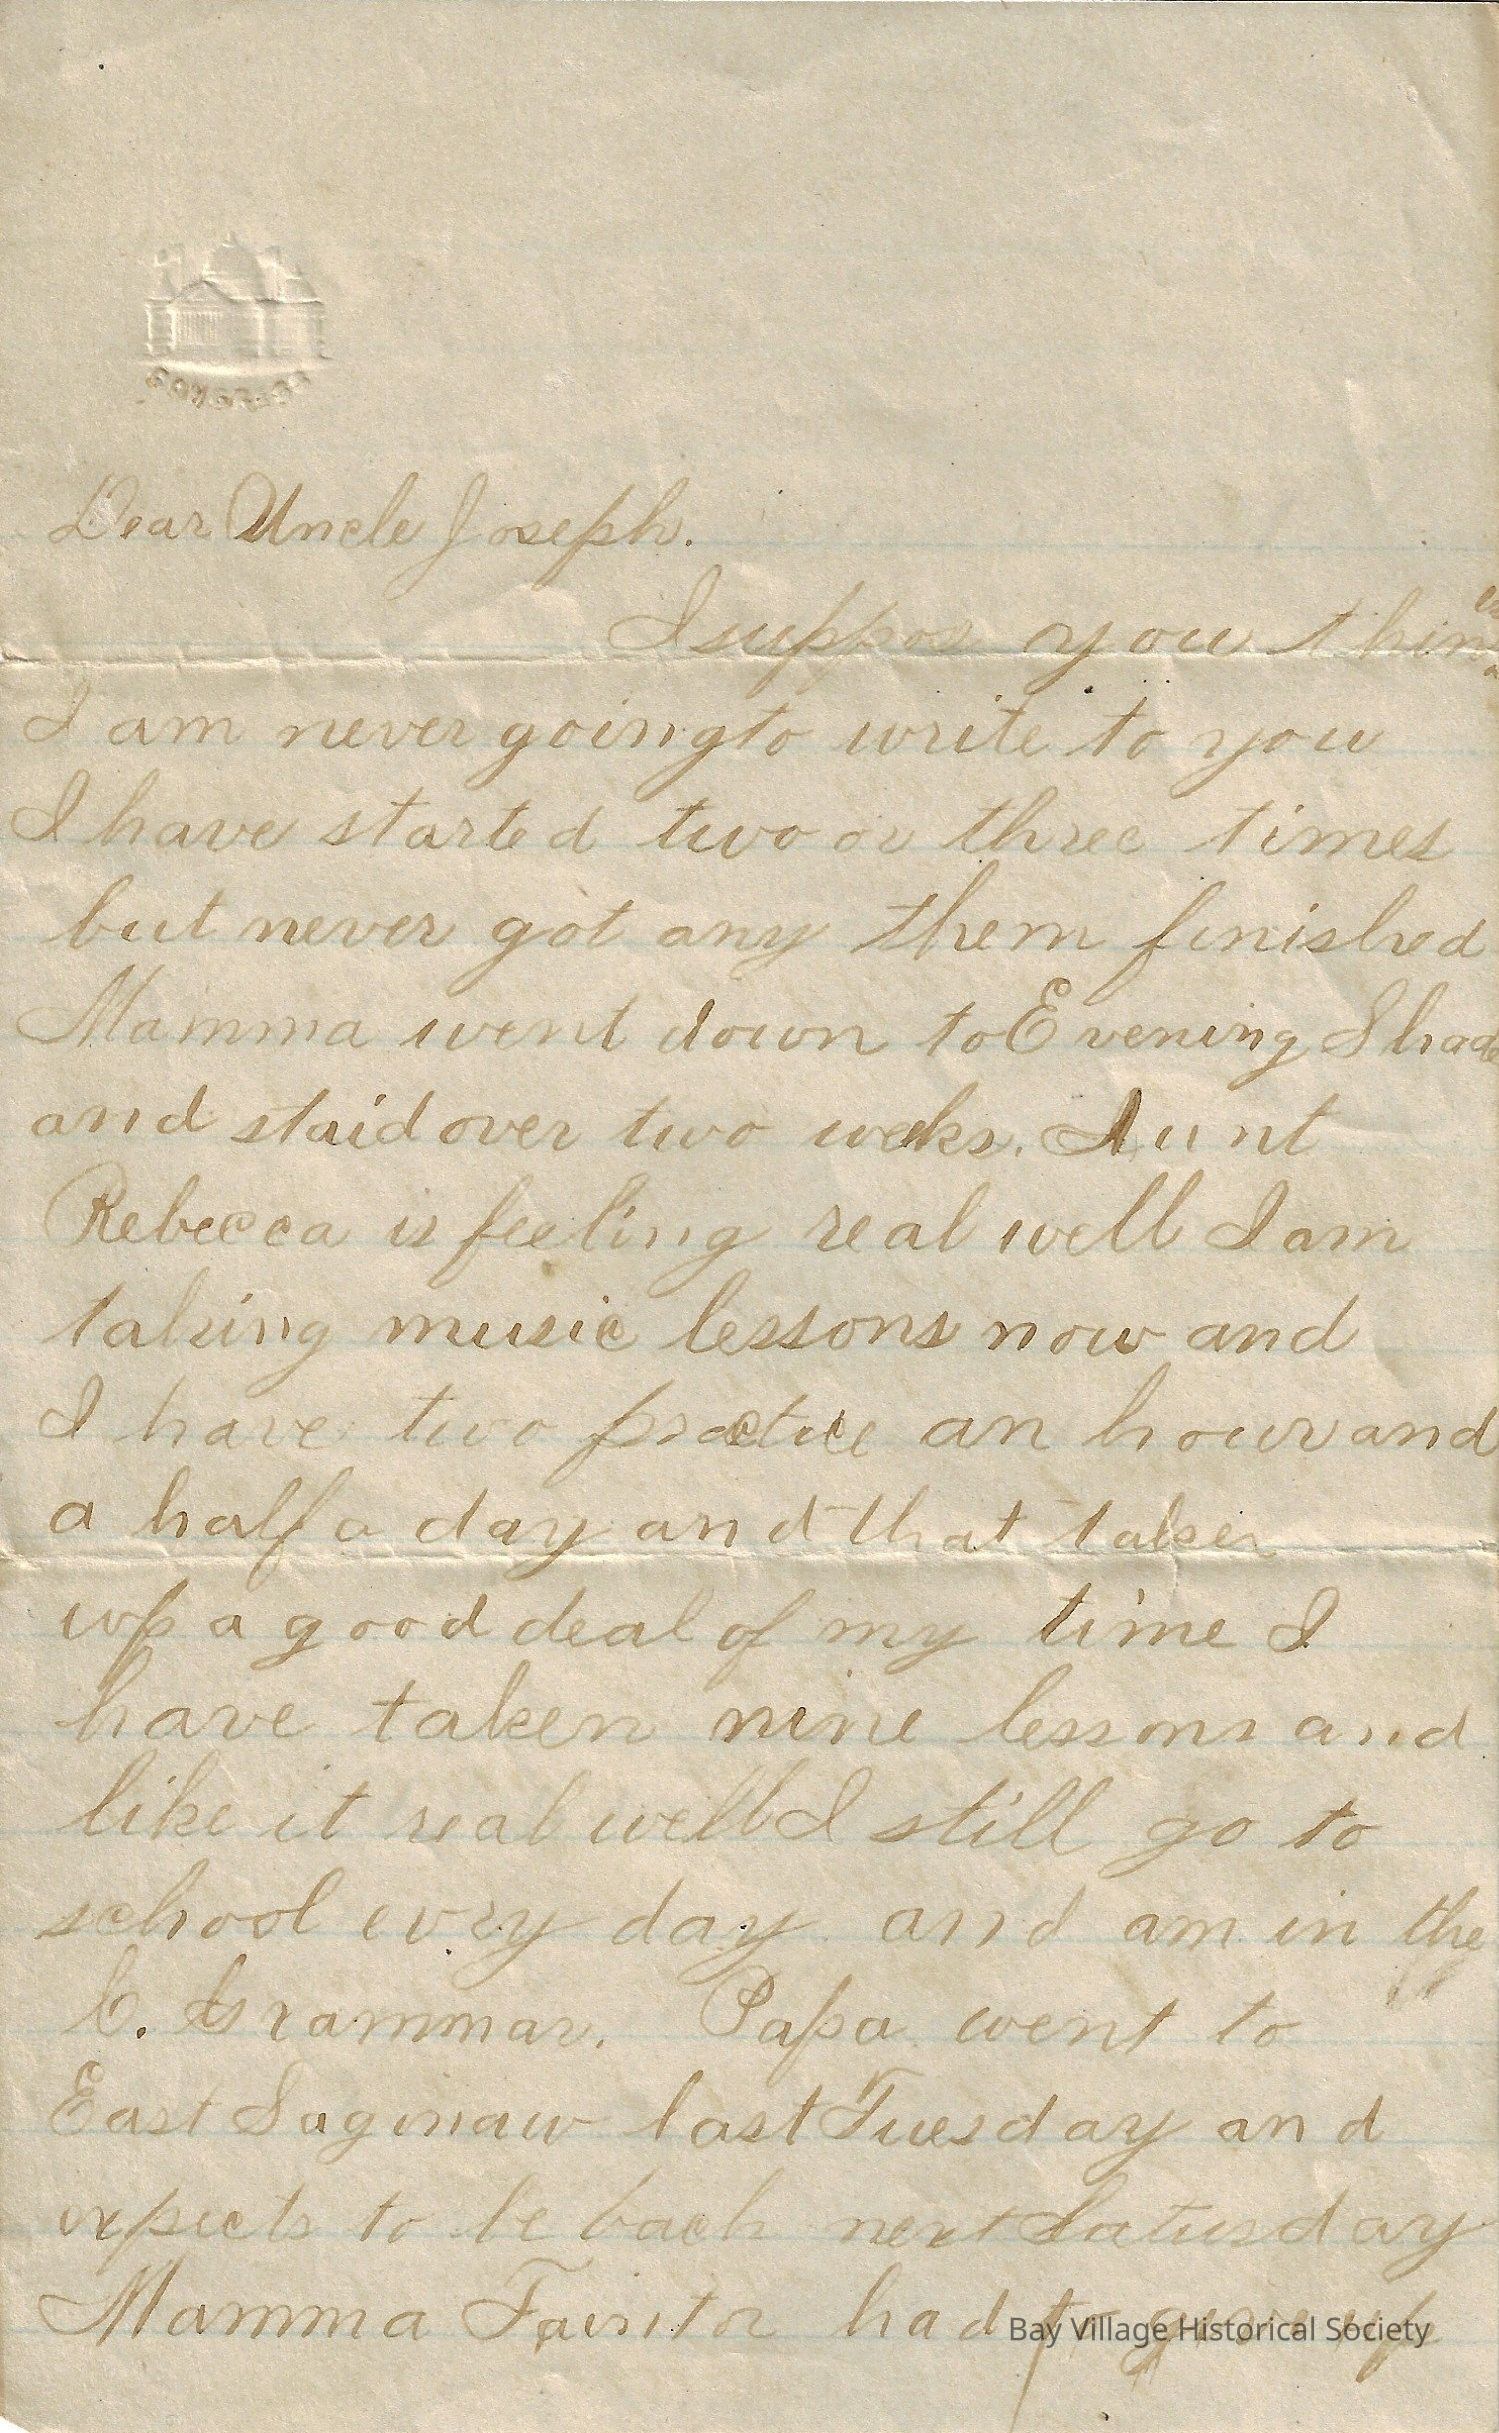 CONGRESS
Dear Uncle Joseph.
I suppos you think
I am never going to write to you
I have started two or three times
but never got any them finished
Mamma went down to Evening Shade
and staid over two weks. Aunt
Rebecca is feeling real well I am
taking music lessons now and
I have two practice an hour and
a half a day and that takes
up a good deal of my time I
have taken nine lessons and
like it real well I still go to
school evry day and am in the
C. Grammar. Papa went to
East Saginaw last Tuesday and
expects to be back next Saturday
Mamma had to give up
Bay Village Historical Society